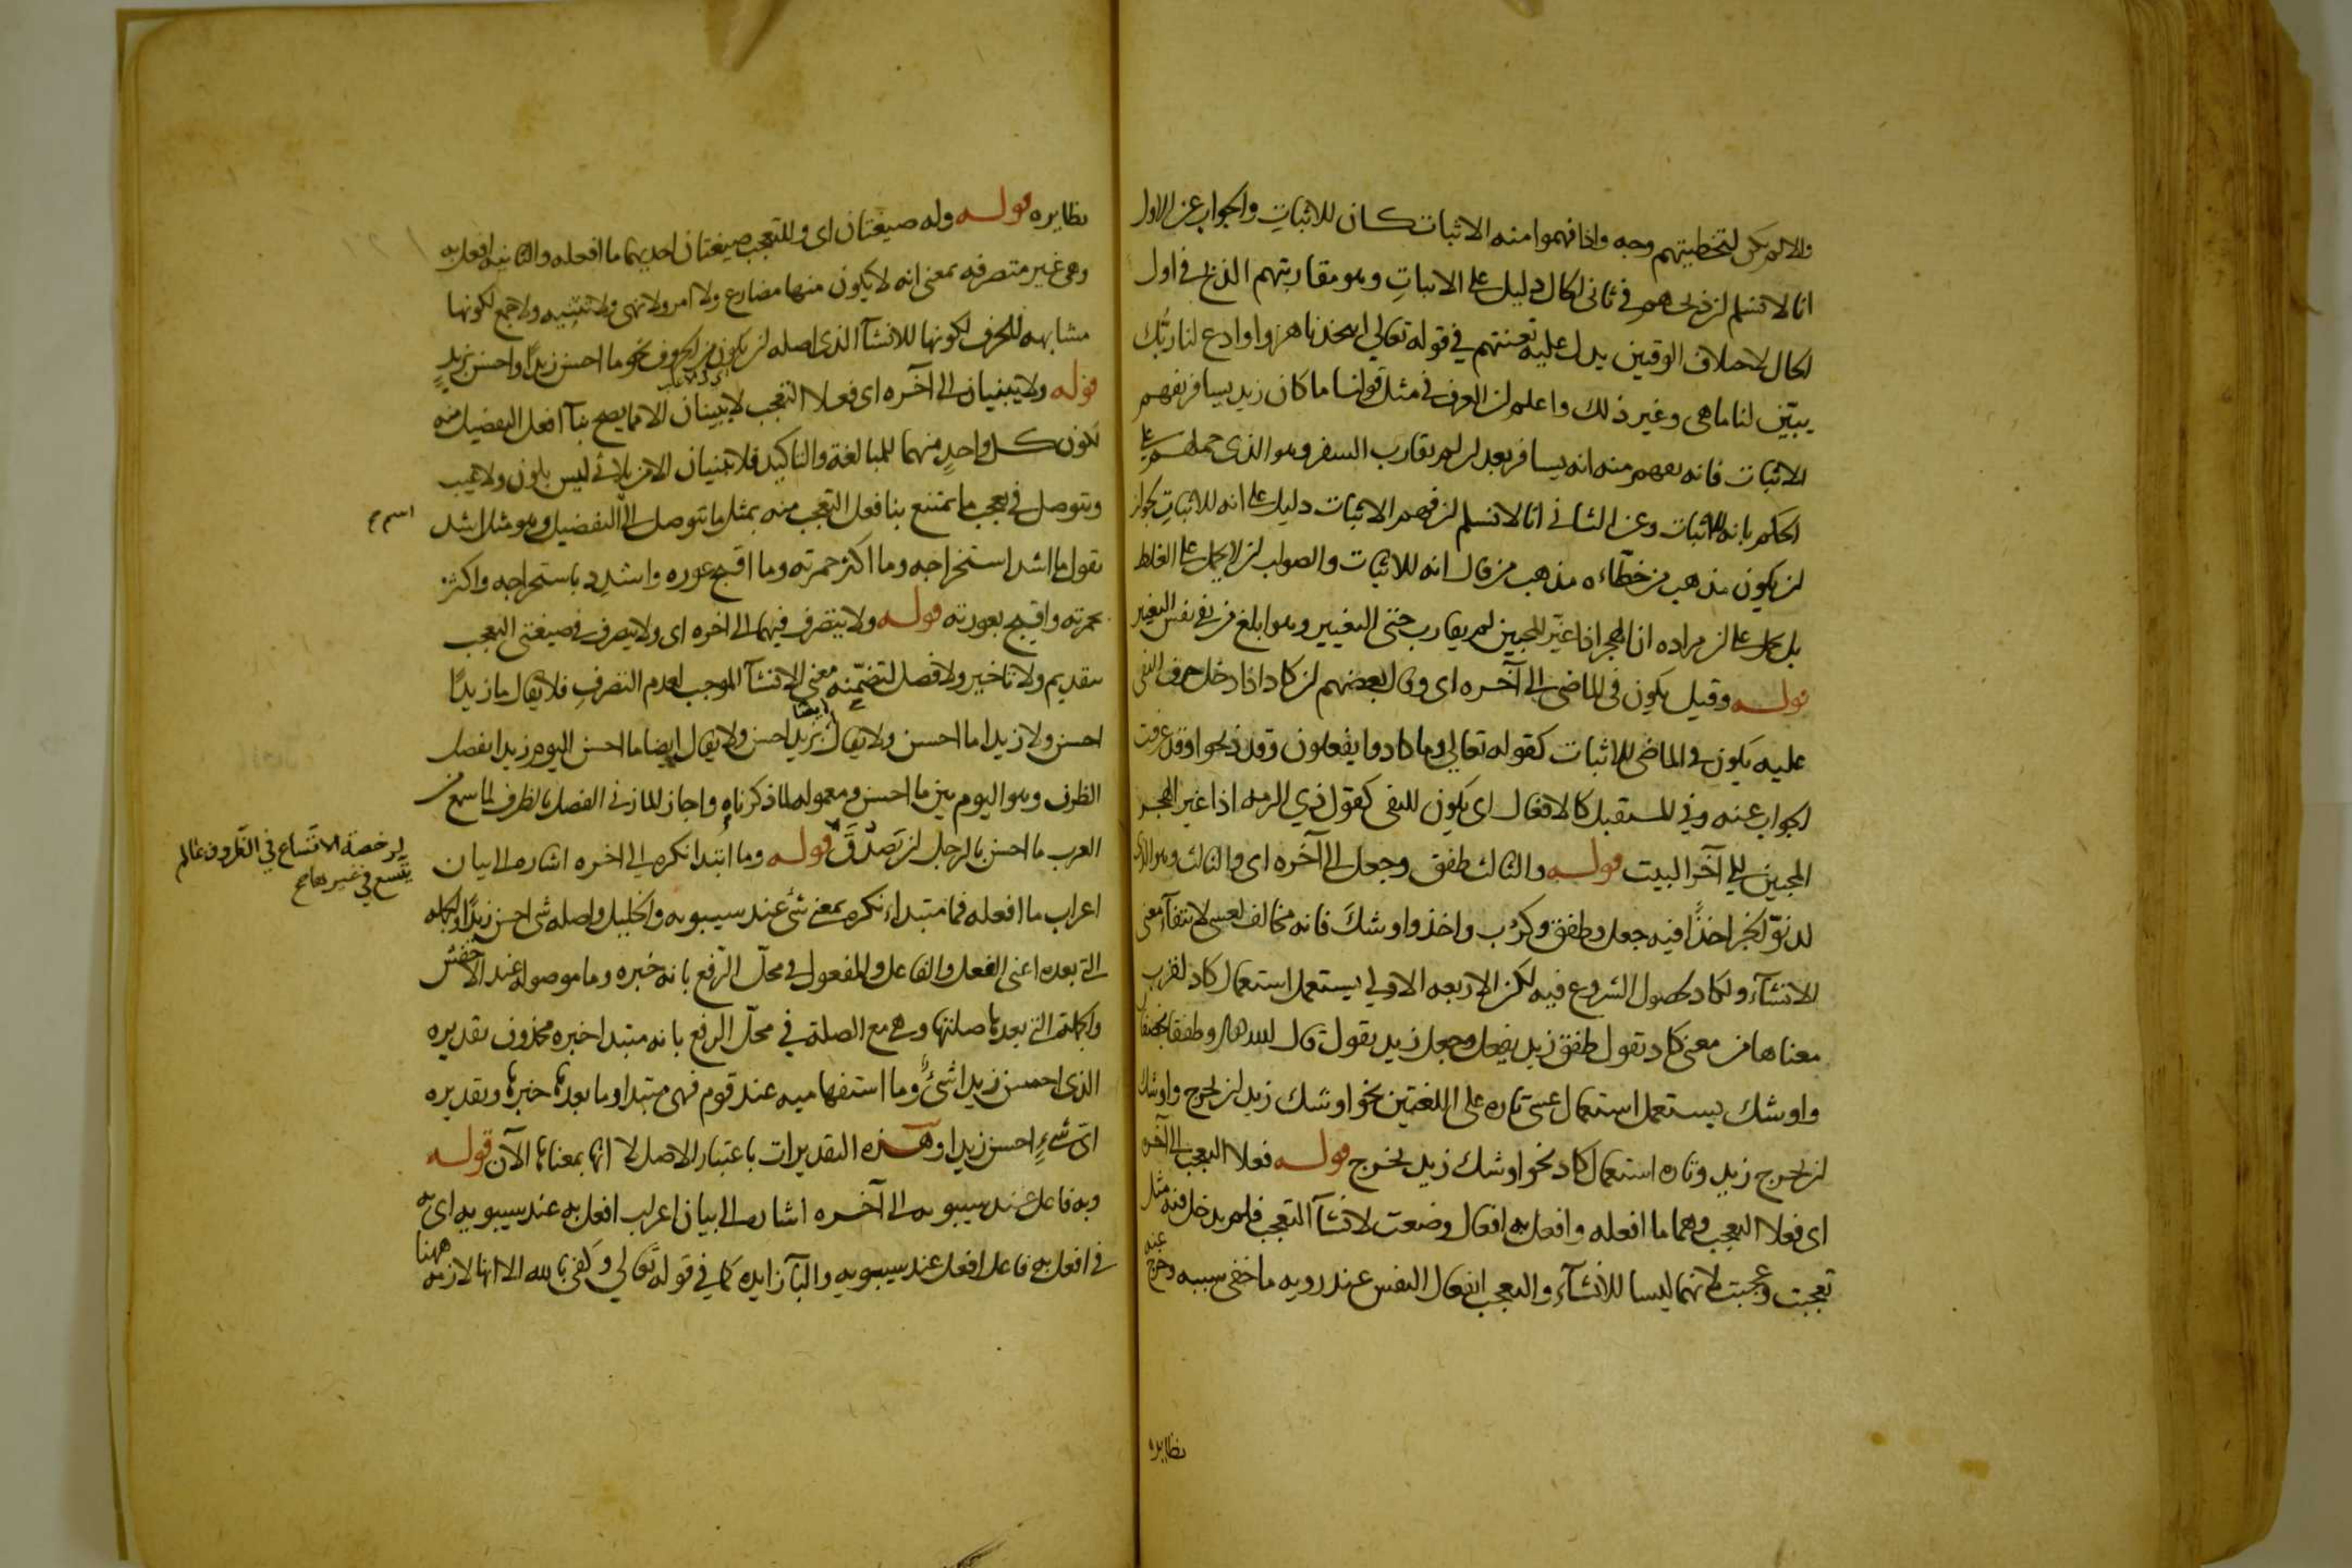 والا لم يكن لتخطيتهم وجه واذا فهموا منه الاثبات كان للاثبات والجواب عن الاول
انا لا نسلم ان ذبحهم في ثاني الحال دليل على الاثبات وهو مقاربتهم الذبح في اول
الحال لاختلاف الوقتين يدل عليه تعنتهم في قوله تعالى اتتخذنا هزوا وادع لنا ربك
يبيّن لنا ما هي وغير ذلك واعلم ان العرف في مثل قولنا ما كان زيد يسافر يفهم
الاثبات فانه يفهم منه انه يسافر بعد ان لم يقارب السفر وهو الذي حملهم على
الحكم بانه للاثبات وعن الثاني انا لا نسلم ان فهم الاثبات دليل على انه للاثبات لجواز
ان يكون مذهب من خطّاءه مذهب من قال انه للاثبات والصواب ان لا يحمل على الغلط
بل يحمل على ان مراده ان الهجر اذا غيّر المحبين لم يقارب حبّي التغيير وهو ابلغ من نفي نفس التغيير
قوله وقيل يكون في الماضي الى آخره اي وقال بعضهم ان كاد اذا دخل حرف النفي
عليه يكون في الماضي للاثبات كقوله تعالى وما كادوا يفعلون وقد ذبحوا وقد عرفت
الجواب عنه وفي المستقبل كالافعال اي يكون للنفي كقول ذي الرمه اذا غير الهجر
المحبين الى آخر البيت قوله والثالث طفق وجعل الى آخره اي والثالث وهو الذي
لدنوّ الخبر اخذًا فيه جعل وطفق وكرُب واخذ واوشكَ فانه مخالف لعسى لانتفآء معنى
الانشآء ولكاد لحصول الشروع فيه لكن الاربعه الاولى يستعمل استعمال كاد لقرب
معناها من معنى كاد تقول طفق زيد يفعل وجعل زيد يقول قال الله تعالى وطفقا يخصفان
واوشك يستعمل استعمال عسى تاره على اللغتين نحو اوشك زيد ان يخرج واوشك
ان يخرج زيد وتاره استعمال كاد نحو اوشك زيد يخرج قوله فعلا التعجب الى آخره
اي فعلا التعجب وهما ما افعله وافعل به افعال وضعت لانشآ التعجب فلم يدخل فيه مثل
تعجبت وعجبت لانهما ليسا للانشآء والتعجب انفعال النفس عند رويه ما خفي سببه وخرج عنه
نظايره
نظايره قوله وله صيغتان اي وللتعجب صيغتان احديهما ما افعله والثانيه افعل به
وهي غير متصرفه بمعنى انه لا يكون منها مضارع ولا امر ولا نهي ولا تثنيه ولا جمع لكونها
مشابهه للحرف لكونها للانشآ الذي اصله ان يكون من الحروف نحو ما احسن زيدًا واحسن بزيدٍ
قوله ولا يبنيان الى آخره اي فعلا التعجب لا يبنيان الا مما يصح بنآ افعل التفضيل منه
لكون كل واحدٍ منهما للمبالغة والتاكيد فلا يبنيان الا من ثلاثي ليس بلون ولا عيب
ويتوصل في تعجب ما يمتنع بنا فعل التعجب منه بمثل ما يتوصل الى التفضيل وهو مثل اشد
اسم
تقول ما اشد استخراجه وما اكثر حمرته وما اقبح عوره واشدِد باستخراجه واكثر
بحمرته واقبح بعورته قوله ولا يتصرف فيهما الى اخره اي ولا يتصرف في صيغتي التعجب
بتقديم ولا تاخير ولا فصل لتضمّنه معنى الانشآ الموجب لعدم التصرف فلا يقال ما زيدًا
احسن ولا زيدا ما احسن ولا يقال ايضا بزيد احسن ولا يقال ايضا ما احسن اليوم زيدا بفصل
الظرف وهو اليوم بين ما احسن ومعموله لما ذكرناه واجاز المازني الفصل بالظرف لما سمع من
العرب ما احسن بالرجل ان تَصدَّقَ قوله وما ابتدا نكره الى اخره اشاره الى بيان
لرخصة الاتّساع في الظروف ما لم
يتّسع في غيرها صح
اعراب ما افعله فما مبتداء نكره بمعنى شئ عند سيبويه والخليل واصله شئ احسن زيدًا والجمله
التي بعده اعني الفعل والفاعل والمفعول في محلّ الرّفع بانه خبره وما موصوله عند الاخفش
والجملة التي بعدها صلتها وهي مع الصلة في محلّ الرفع بانه مبتدا خبره محذوف تقديره
الذي احسن زيدا شئ وما استفهاميه عند قوم فهي مبتدا وما بعدها خبرها وتقديره
ايّ شئٍ احسن زيدا وهذه التقديرات باعتبار الاصل لا انها بمعناها الآن قوله
وبه فاعل عند سيبويه الى آخره اشاره الى بيان اعراب افعل به عند سيبويه اي به
في افعل به فاعل افعل عند سيبويه والبآ زايده كما في قوله تعالى وكفى بالله الا انها لازمه ههنا